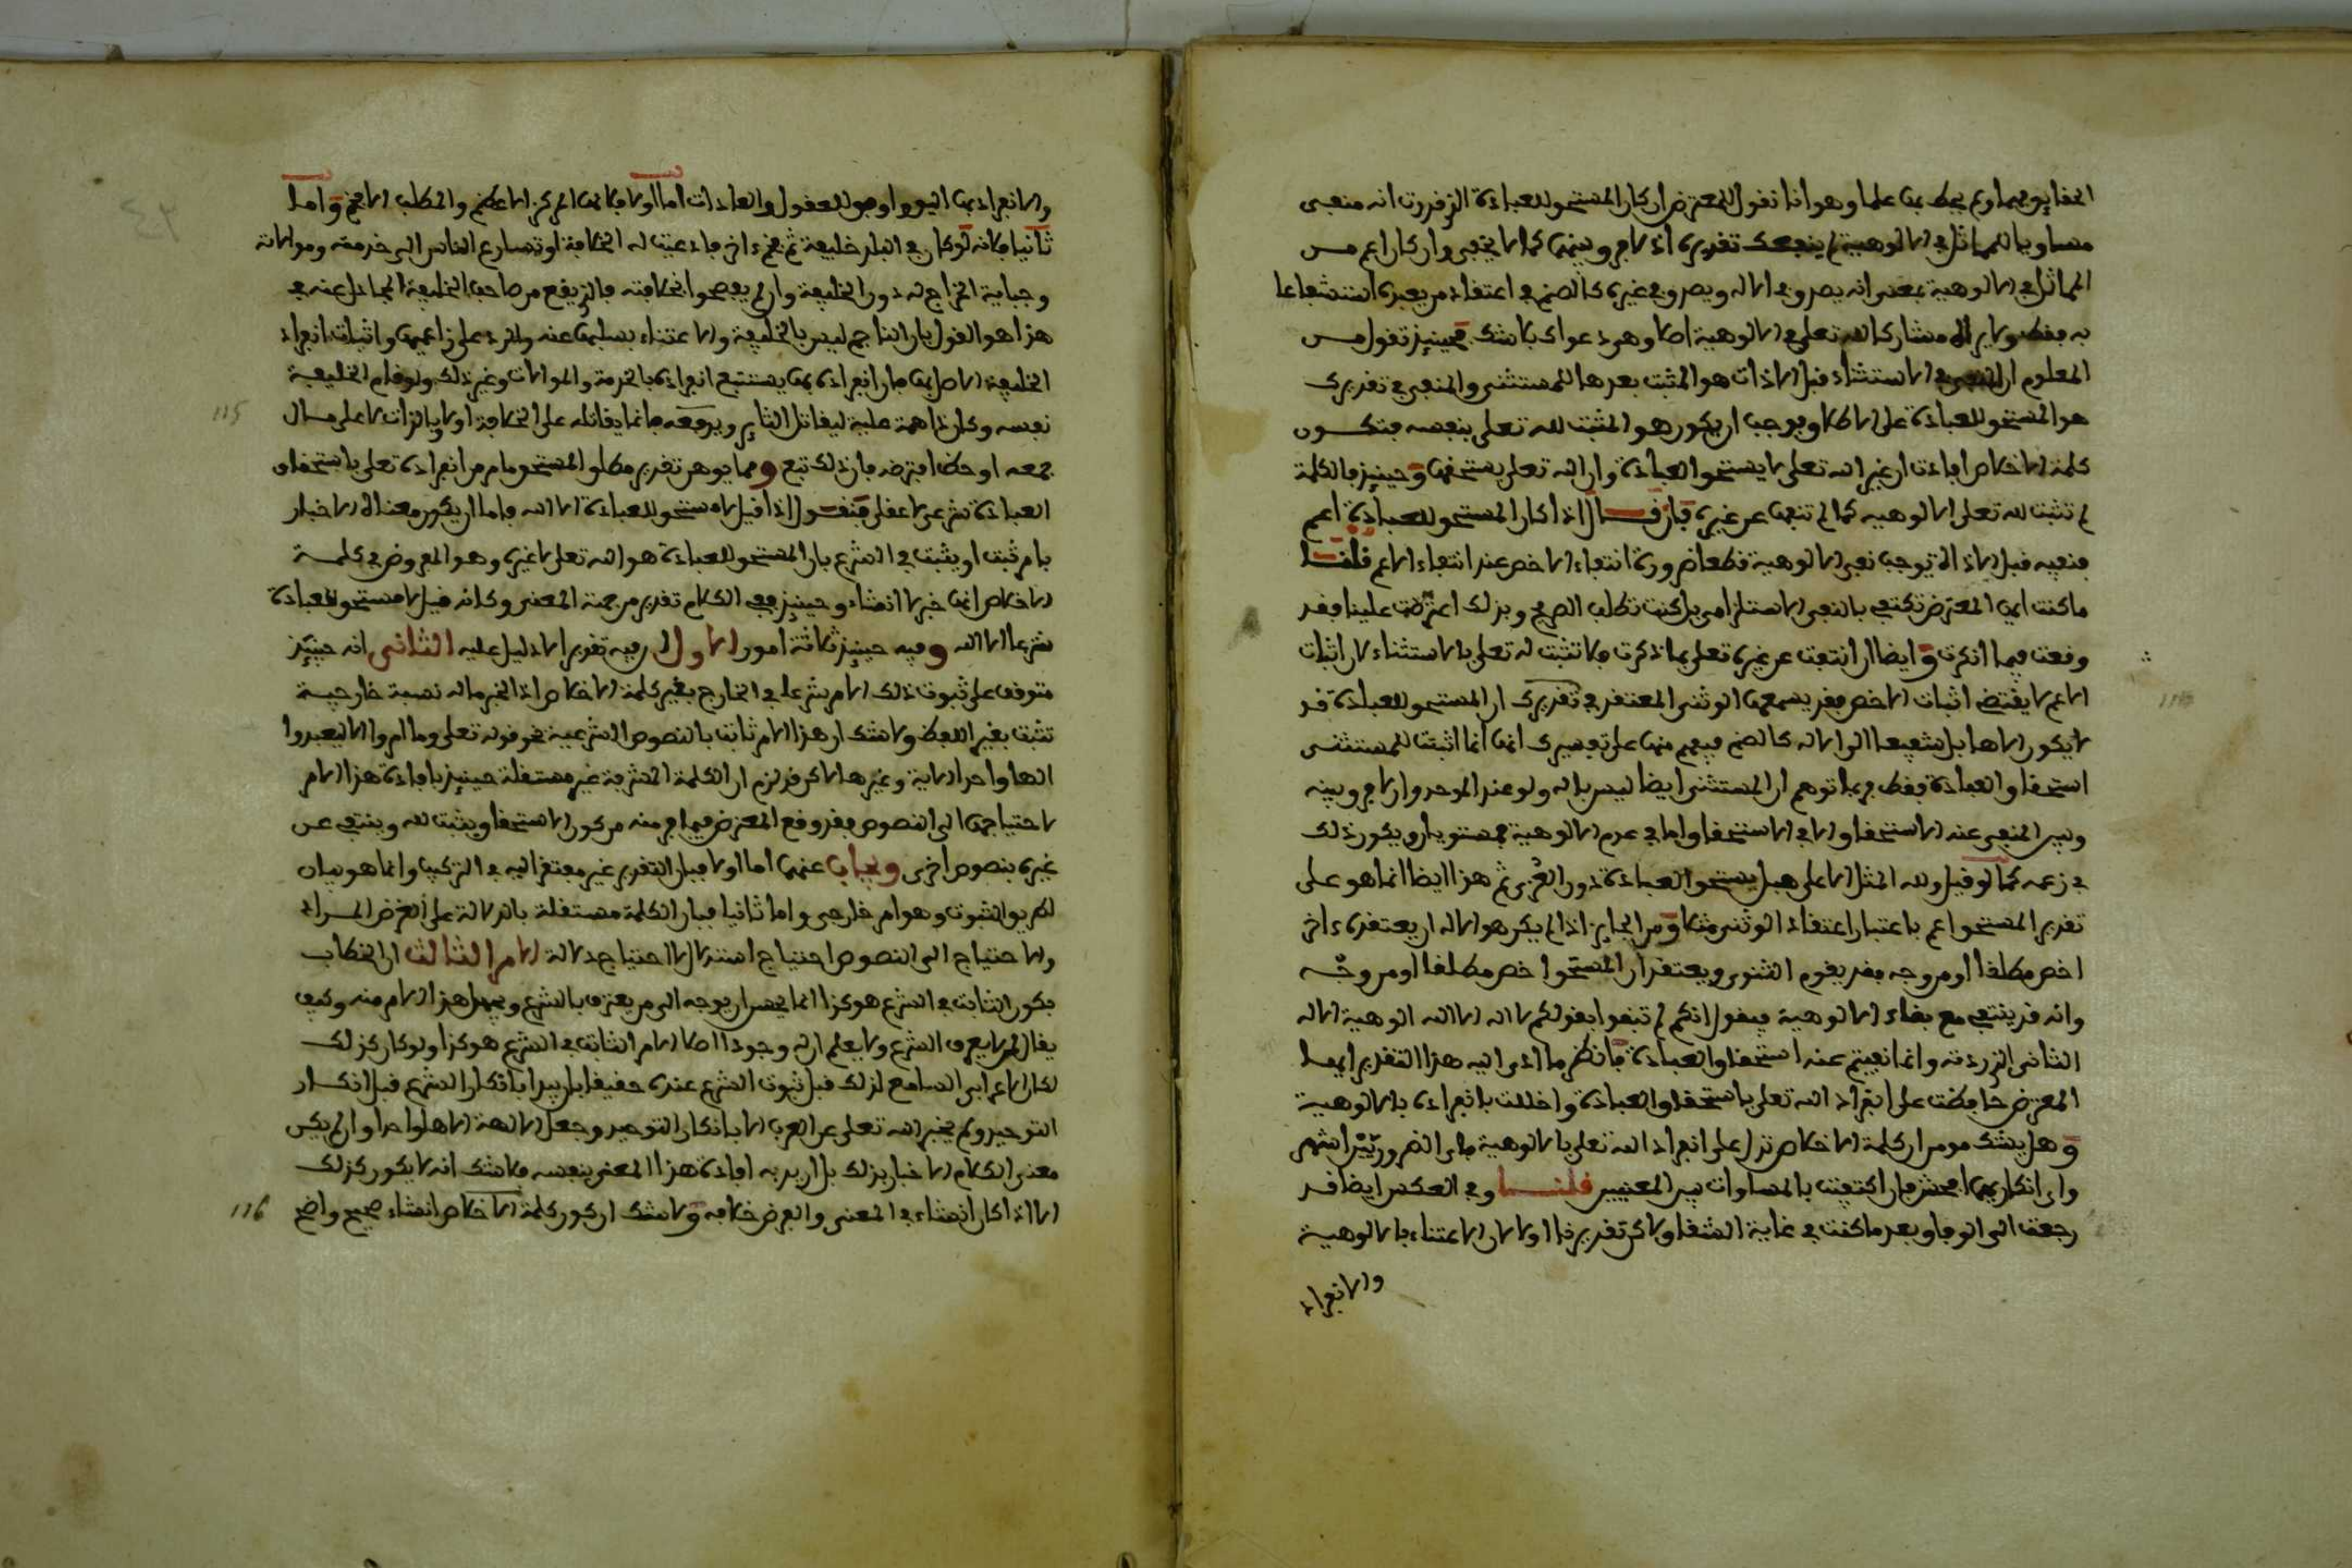 الحقايق مهما ولم يحط بها علما وهو انا نقول للمعترض ان كان المستحق للعبادة الذي قدرت انه منفي
مساويا للمماثل في الالوهية لم ينفعك تقديره اذ لا فرق بينهما كما لا يخفى وان كان اعم من
المماثل في الالوهية بمعنى انه يصدق في الاله ويصدق في غيره كالصنم في اعتقاد من يعبده استشفاعا
به فقط ولا يراه مشاركا لله تعلى في الالوهية اصلا وهو دعواك بلا شك فحينئذ نقول من
المعلوم ان المنفي في الاستثناء قبل الا ذات هو المثبت بعدها للمستثنى والمنفي في تقديرك
هو المستحق للعبادة على الاطلاق فوجب ان يكون هو المثبت لله تعلى بنفسه فتكون
كلمة الاخلاص افادت ان غير الله تعلى لا يستحق العبادة وان الله تعلى يستحقها وحينئذ فالكلمة
لم تثبت لله تعلى الالوهيه كما لم تنفها عن غيره فان قال اذا كان المستحق للعبادة اعم
فنفيه قبل الاداة يوجب نفي الالوهية قطعا ضرورة انتفاء الاخص عند انتفاء الاعم قلنا
ما كنت ايها المعترض تكتفي بالنفي الاستلزامي بل كنت تطلب الصريح وبذلك اعترضت علينا فقد
وقعت فيما انكرت وايضا ان انتفت عن غيره تعلى بما ذكرت فلا تثبت له تعلى بالاستثناء لان اثبات
الاعم لا يقتضي اثبات الاخص فقد يسمعها الوثني المعتقد في تقديرك ان المستحق للعبادة قد
لا يكون الاها بل شفيعا الى الاله كالصنم فيفهم منها على تفسيرك انها انما اثبتت للمستثنى
استحقاق العبادة فقط فربما توهم ان المستثنى ايضا ليس باله ولو عند الموحد وان لا فرق بينه
وبين المنفي عنه الاستحقاق الا في الاستحقاق واما في عدم الالوهية فمستويان ويكون ذلك
في زعمه كما لو قيل ولله المثل الاعلى هبل يستحق العبادة دون العزى ثم هذا ايضا انما هو على
تقدير المستحق اعم باعتبار اعتقاد الوثني مثلا ومن الجايز اذا لم يكن هو الاله ان يعتقده ءاخر
اخص مطلقا او من وجه فقد يقوم الثنوي ويعتقد ان المستحق اخص مطلقا او من وجه
وانه قد ينتفي مع بقاء الالوهية فيقول انكم لم تنفوا بقولكم لا اله الا الله الوهية الاله
الثاني الذي زدته وانما نفيتم عنه استحقاق العبادة فانظر ما ادى اليه هذا التقدير ايها
المعترض حافظت على انفراد الله تعلى باستحقاق العبادة واخللت بانفراده بالالوهية
وهل يشك مومن ان كلمة الاخلاص تدل على انفراد الله تعلى بالالوهية فاي الضررين اشهر
واي انكاريهما افحش فان اكتفيت بالمساوات بين المعنيين قلنا وفي العكس ايضا قد
رجعت الى الوفاق بعد ما كنت في غاية الشقاق ولاكن تقديرنا اولى لان الاعتناء بالالوهية
والانفراد
والانفراد بها اليق واوفق للعقول والعادات اما اولا فلانها المركز الاعظم والمطلب الافخم واما
ثانيا فلانه لو كان في البلد خليفة ثم نجم ءاخر فادعيت له الخلافة او تسارع الناس الى خدمته وموالاته
وجباية الخراج له دون الخليفة وان لم يفصحوا بخلافته فالذي يقع من صاحب الخليفة المجادل عنه في
هذا هو القول بان الناجم ليس بالخليفة والاعتناء بسلبها عنه والرد على زاعميها واثبات انفراد
الخليفة الاصلي بها فان انفراده بها يستتبع انفراده بالخدمة والموالات وغير ذلك ولو قام الخليفة
نفسه وكان ذا همة علية ليقاتل الثاير ويدفعه فانما يقاتله على الخلافة اولا وبالذات لا على مال
جمعه او حظ اقترضه فان ذلك تبع ومما يوهن تقدير مطلق المستحق ما مر من انفراده تعلى باستحقاق
العبادة شرعي لا عقلي فنقول اذا قيل لا مستحق للعبادة الا الله فاما ان يكون معناه الاخبار
بامر ثبت او يثبت في الشرع بان المستحق للعبادة هو الله تعلى لا غيره وهو المفروض في كلمة
الاخلاص انها خبر لا انشاء وحينئذ ففي الكلام تقدير من جهة المعنى وكانه قيل لا مستحق للعبادة
شرعا الا الله وفيه حينئذ ثلاثة امور الاول ان فيه تقدير الا دليل عليه الثاني انه حينئذ
متوقف على ثبوت ذلك الامر شرعا في الخارج بغير كلمة الاخلاص اذ الخبر ما له نسبة خارجية
تثبت بغير اللفظ ولا شك ان هذا الامر ثابت بالنصوص الشرعية نحو قوله تعلى وما امروا الا ليعبدوا
الها واحدا الاية وغيرها لاكن قد لزم ان الكلمة المشرفة غير مستقلة حينئذ بافادة هذا الامر
لاحتياجها الى النصوص فقد وقع المعترض فيما فر منه من كون الاستحقاق يثبت لله وينتفي عن
غيره بنصوص اخرى ويجاب عنهما اما اولا فبان التقدير غير مفتقر اليه في التركيب وانما هو بيان
لطريق الثبوت وهو امر خارجي واما ثانيا فبان الكلمة مستقلة بالدلالة على الغرض المراد
والاحتياج الى النصوص احتياج استدلال لا احتياج دلالة الامر الثالث ان الخطاب
بكون الثابت في الشرع هو كذا انما يحسن ان يوجه الى من يعترف بالشرع ويجهل هذا الامر منه وكيف
يقال لمن لا يعرف الشرع ولا يعلم ان له وجودا اصلا الامر الثابت في الشرع هو كذا ولو كان كذلك
لكان الاعرابي السامع لذلك قبل ثبوت الشرع عنده حقيقا بان يبدا بانكار الشرع قبل انكار
التوحيد ولم يخبر الله تعلى عن العرب الا بانكار التوحيد وجعل الالهة الاها واحدا وان لم يكن
معنى الكلام الاخبار بذلك بل اريد به افادة هذا المعنى بنفسه فلا شك انه لا يكون كذلك
الا اذا كان انشاء في المعنى والفرض خلافه ولا شك ان كون كلمة الاخلاص انشاء صحيح واضح
115
116